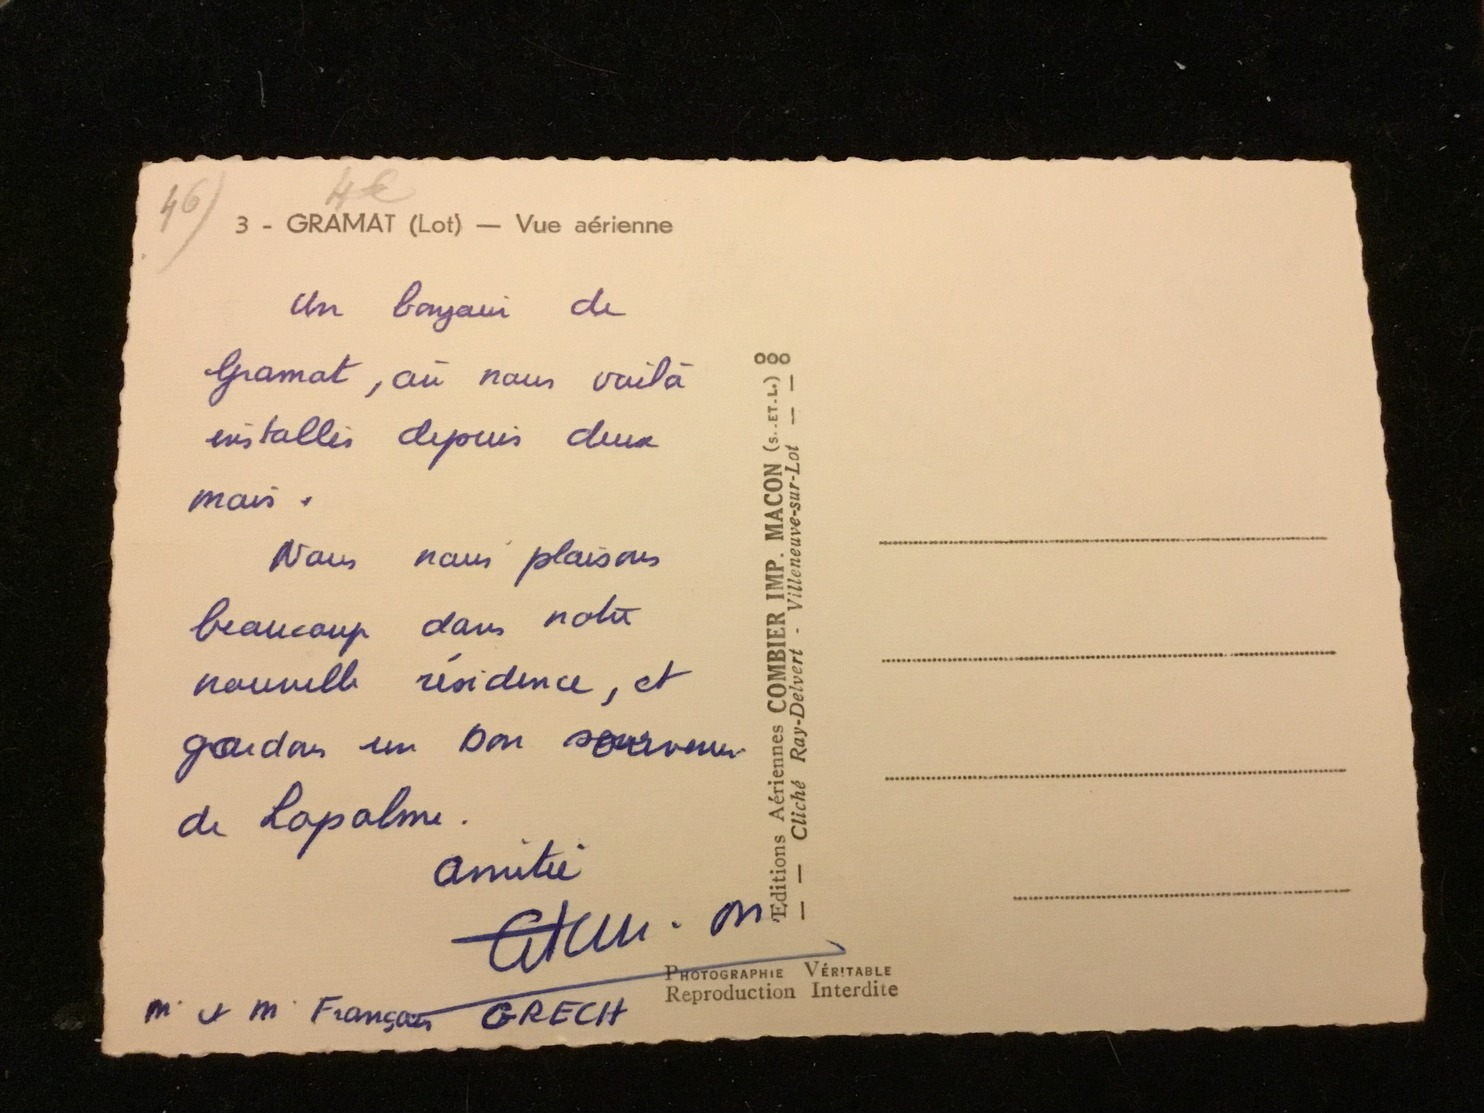 46)
4€
3 - GRAMAT (Lot) — Vue aérienne
Un bonjour de
Gramat, où nous voilà
installés depuis deux
mois.
Nous nous plaisons
beaucoup dans notre
nouvelle résidence, et
gardons un bon souvenir
de Lapalme.
Amitié
M et M François GRECH
Editions Aériennes COMBIER IMP. MACON (S.-ET-L.) ooo
— — Cliché Ray-Delvert - Villeneuve-sur-Lot — —
PHOTOGRAPHIE VÉRITABLE
Reproduction Interdite